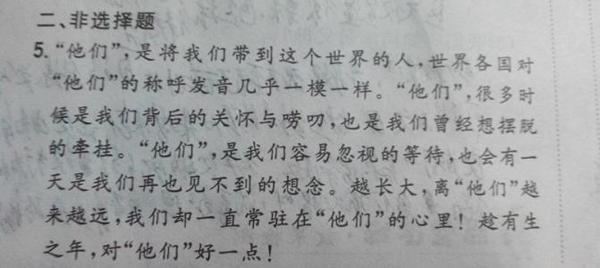 二、非选择题
5. “他们”,是将我们带到这个世界的人,世界各国对
“他们”的称呼发音几乎一模一样。“他们”,很多时
候是我们背后的关怀与唠叨,也是我们曾经想摆脱
的牵挂。“他们”,是我们容易忽视的等待,也会有一
天是我们再也见不到的想念。越长大,离“他们”越
来越远,我们却一直常驻在“他们”的心里！趁有生
之年,对“他们”好一点！